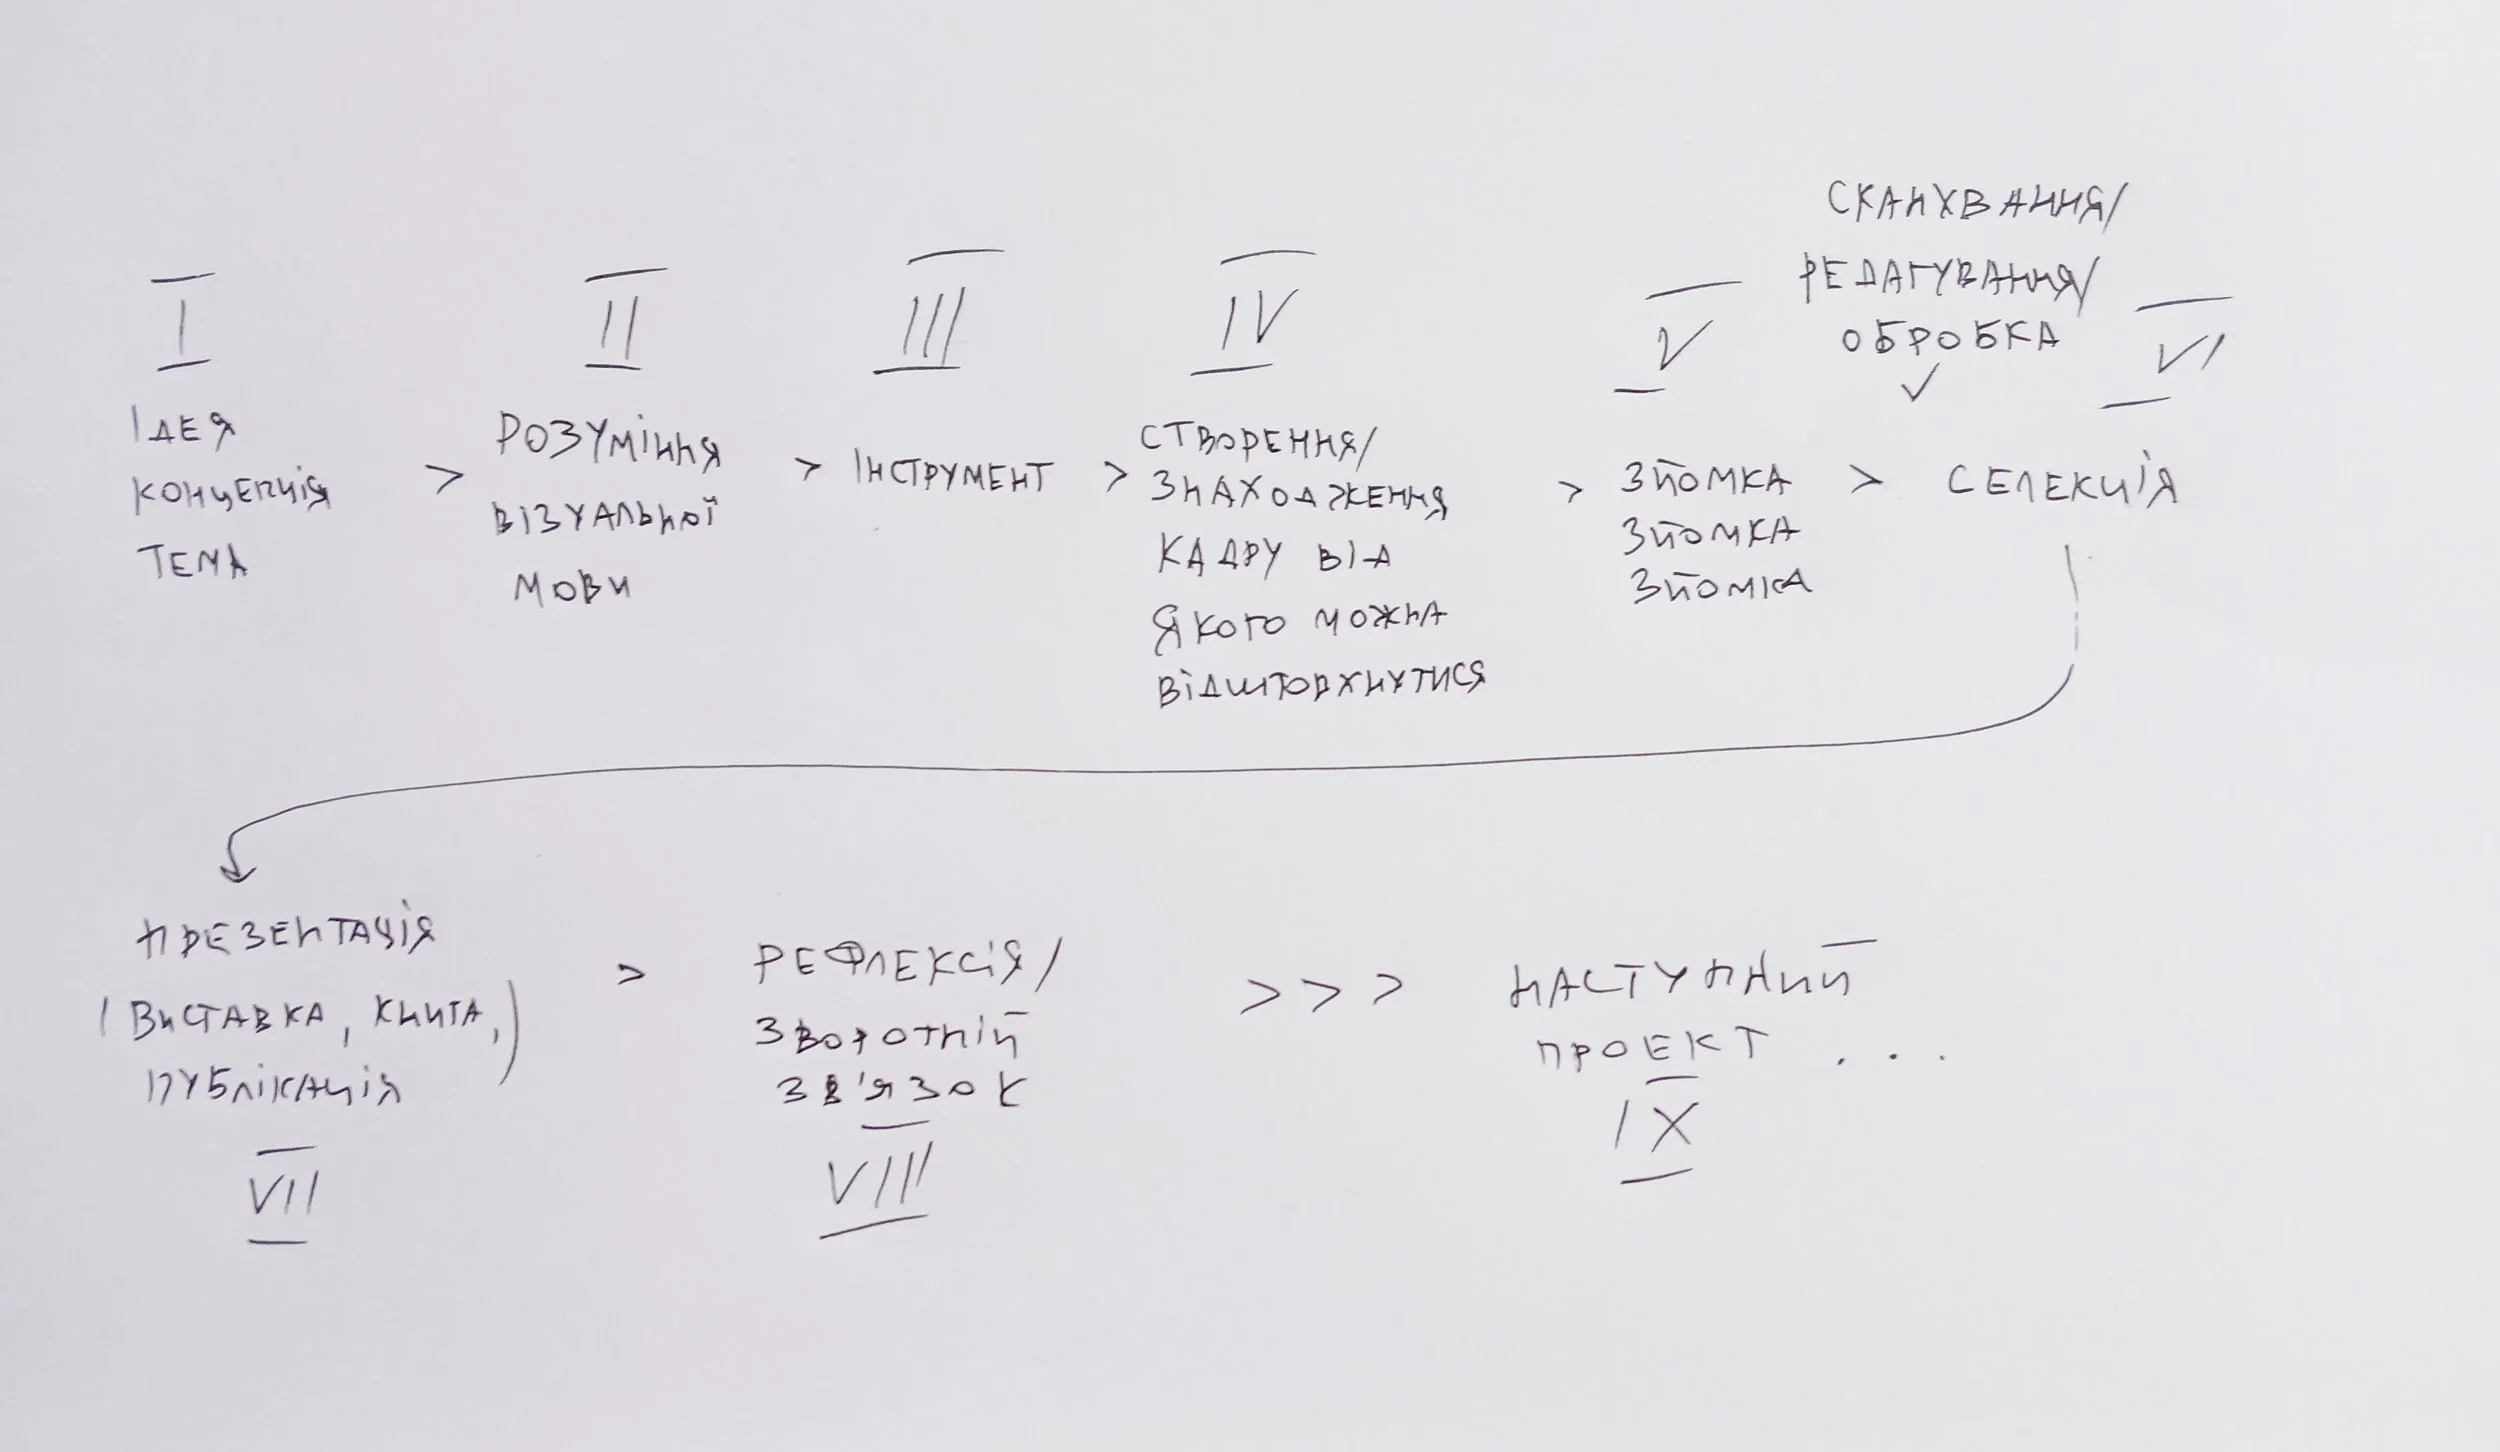 I
ІДЕЯ
КОНЦЕПЦІЯ
ТЕМА
>
II
РОЗУМІННЯ
ВІЗУАЛЬНОЇ
МОВИ
>
III
ІНСТРУМЕНТ
>
IV
СТВОРЕННЯ/
ЗНАХОДЖЕННЯ
КАДРУ ВІД
ЯКОГО МОЖНА
ВІДШТОВХНУТИСЯ
>
V
ЗЙОМКА
ЗЙОМКА
ЗЙОМКА
СКАНУВАННЯ/
РЕДАГУВАННЯ/
ОБРОБКА
>
VI
СЕЛЕКЦІЯ
ПРЕЗЕНТАЦІЯ
(ВИСТАВКА, КНИГА,)
ПУБЛІКАЦІЯ
VII
>
РЕФЛЕКСІЯ/
ЗВОРОТНІЙ
ЗВ'ЯЗОК
VIII
>>>
НАСТУПНИЙ
ПРОЕКТ ...
IX